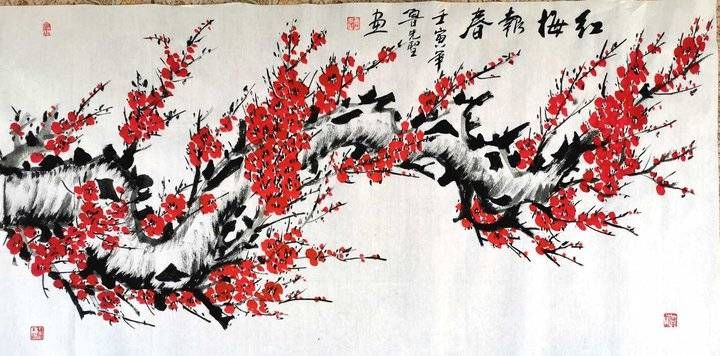 红梅报春
壬寅年
鲁光聖
画